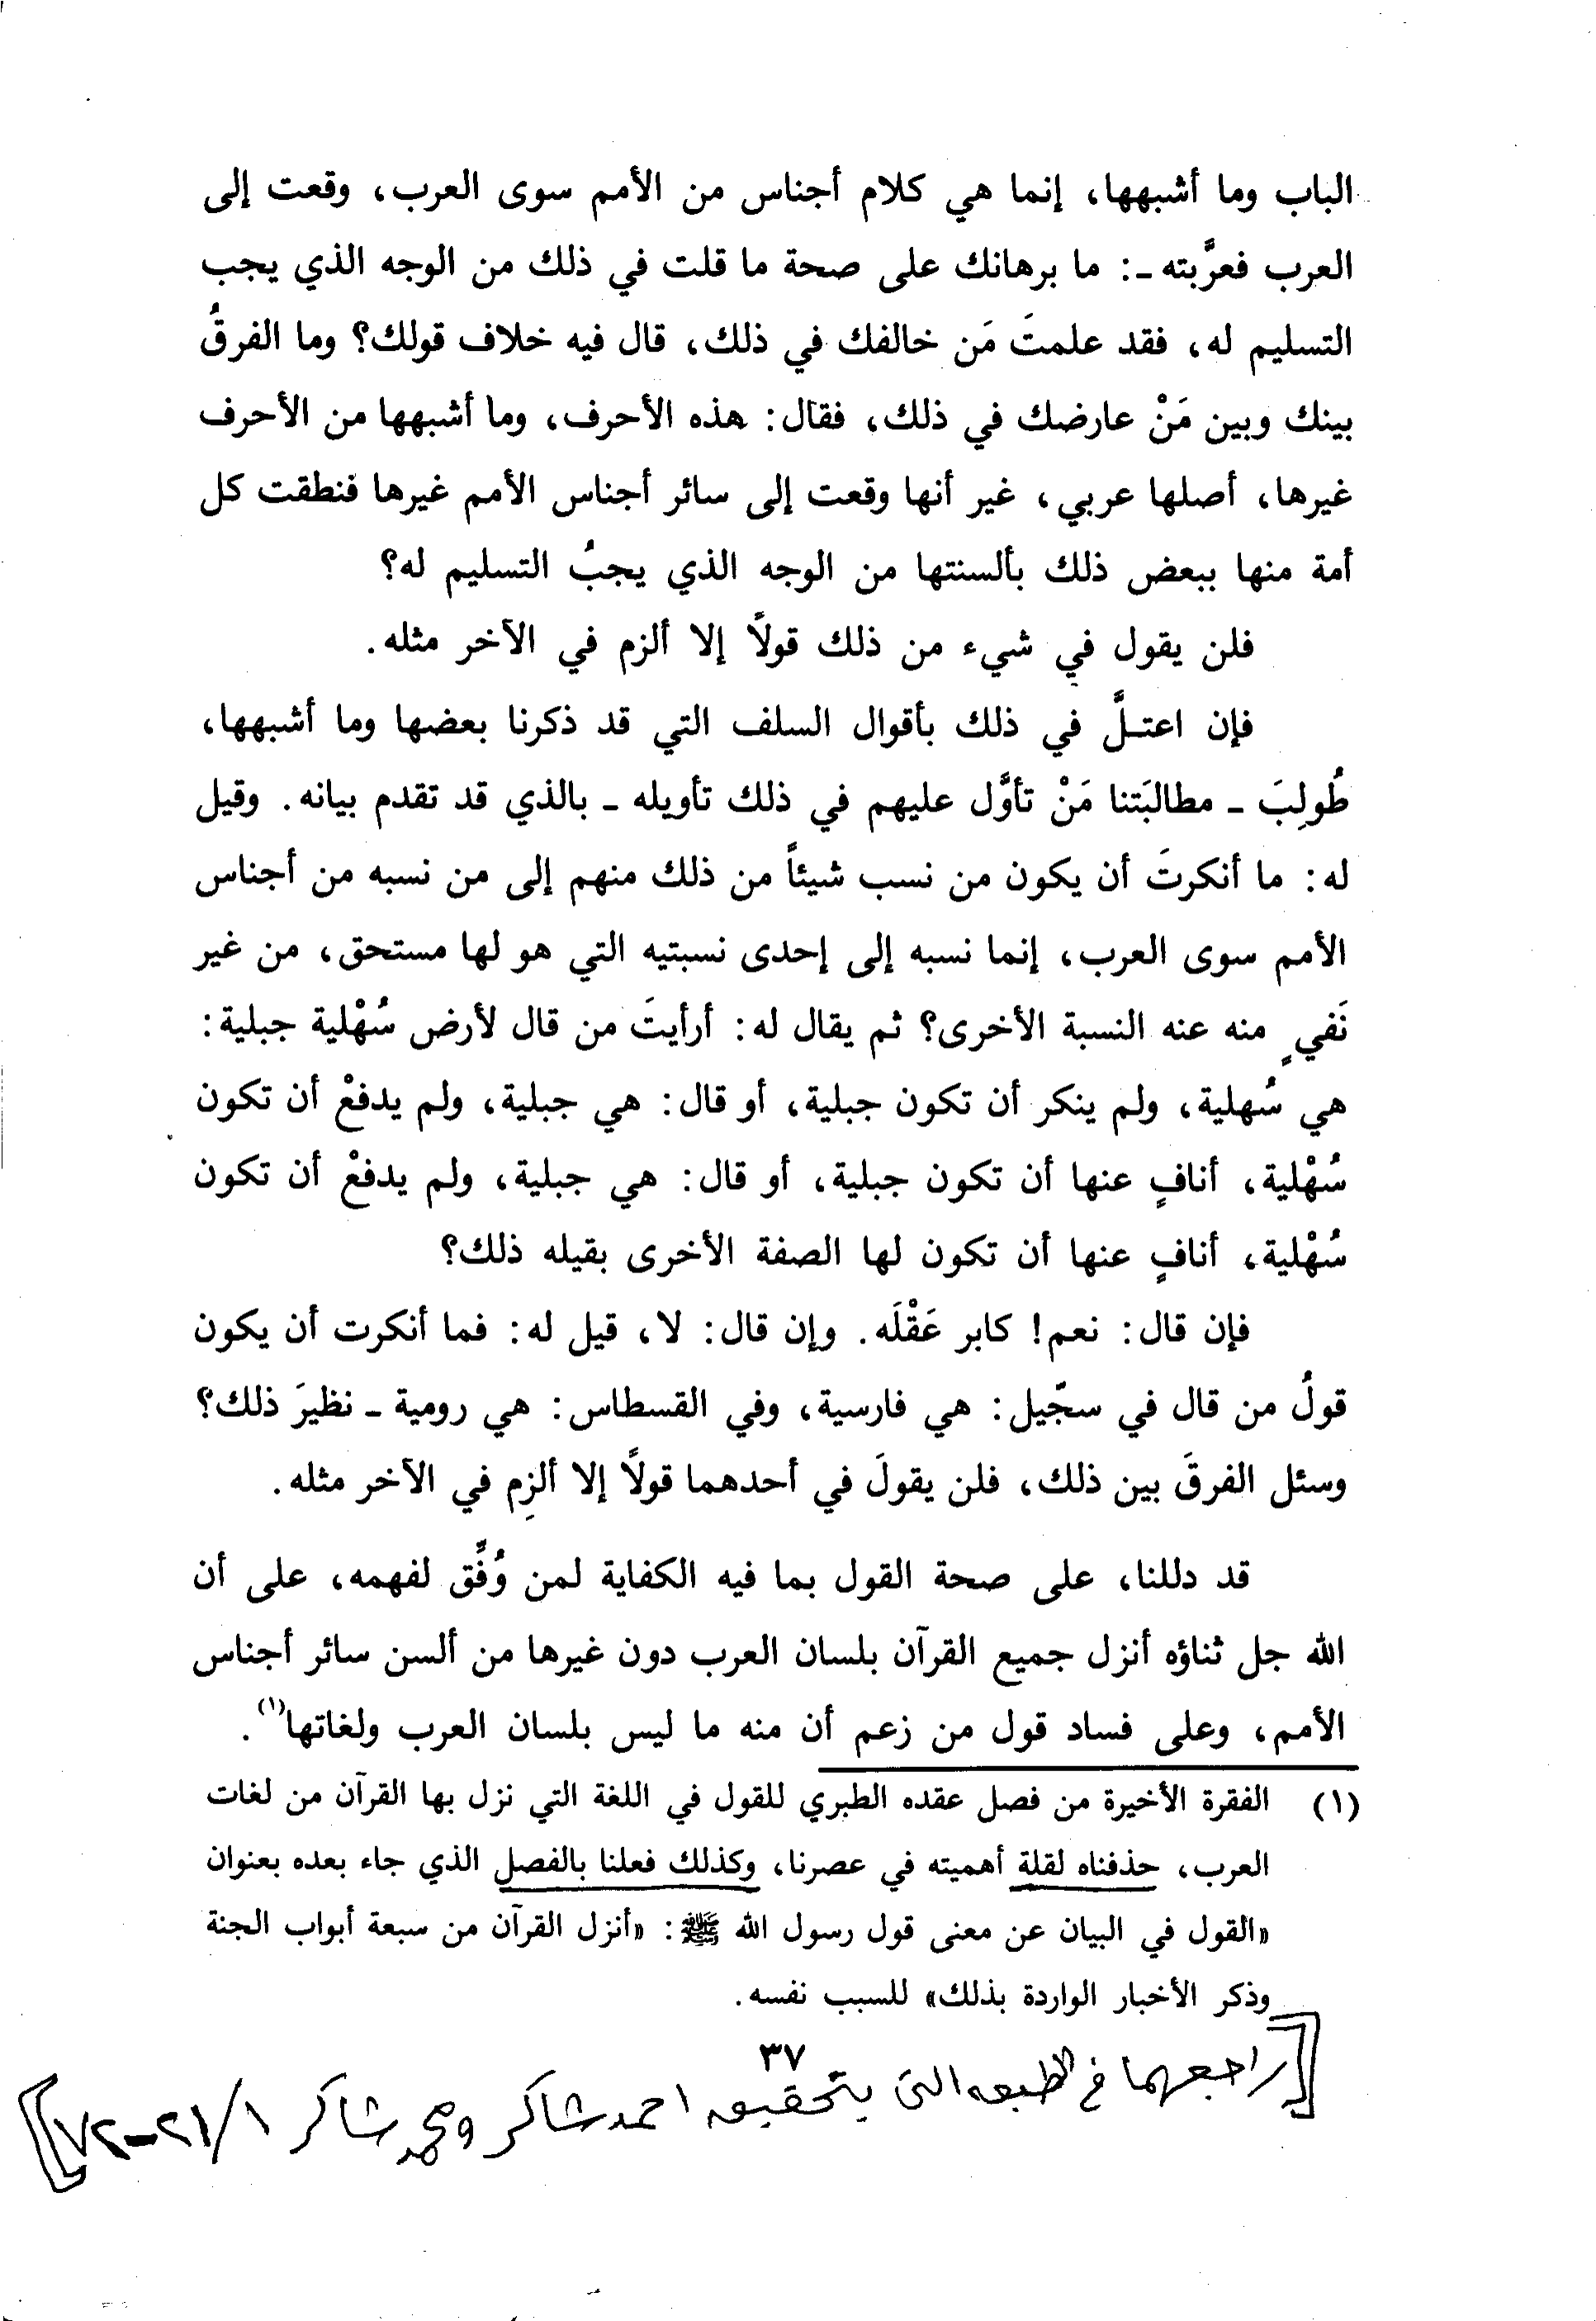 الباب وما أشبهها، إنما هي كلام أجناس من الأمم سوى العرب، وقعت إلى
العرب فعرَّبته -: ما برهانك على صحة ما قلت في ذلك من الوجه الذي يجب
التسليم له، فقد علمتَ مَن خالفك في ذلك، قال فيه خلاف قولك؟ وما الفرقُ
بينك وبين مَنْ عارضك في ذلك، فقال: هذه الأحرف، وما أشبهها من الأحرف
غيرها، أصلها عربي، غير أنها وقعت إلى سائر أجناس الأمم غيرها فنطقت كل
أمة منها ببعض ذلك بألسنتها من الوجه الذي يجبُ التسليم له؟
فلن يقول في شيء من ذلك قولاً إلا ألزم في الآخر مثله.
فإن اعتـلَّ في ذلك بأقوال السلف التي قد ذكرنا بعضها وما أشبهها،
طُولِبَ - مطالبَتنا مَنْ تأوَّل عليهم في ذلك تأويله - بالذي قد تقدم بيانه. وقيل
له: ما أنكرتَ أن يكون من نسب شيئاً من ذلك منهم إلى من نسبه من أجناس
الأمم سوى العرب، إنما نسبه إلى إحدى نسبتيه التي هو لها مستحق، من غير
نَفيٍ منه عنه النسبة الأخرى؟ ثم يقال له: أرأيتَ من قال لأرض سُهْلية جبلية:
هي سُهلية، ولم ينكر أن تكون جبلية، أو قال: هي جبلية، ولم يدفعْ أن تكون
سُهْلية، أنافٍ عنها أن تكون جبلية، أو قال: هي جبلية، ولم يدفعْ أن تكون
سُهْلية، أنافٍ عنها أن تكون لها الصفة الأخرى بقيله ذلك؟
فإن قال: نعم! كابر عَقْلَه. وإن قال: لا، قيل له: فما أنكرت أن يكون
قولُ من قال في سجّيل: هي فارسية، وفي القسطاس: هي رومية - نظيرَ ذلك؟
وسئل الفرقَ بين ذلك، فلن يقولَ في أحدهما قولاً إلا ألزِم في الآخر مثله.
قد دللنا، على صحة القول بما فيه الكفاية لمن وُفِّق لفهمه، على أن
الله جل ثناؤه أنزل جميع القرآن بلسان العرب دون غيرها من ألسن سائر أجناس
الأمم، وعلى فساد قول من زعم أن منه ما ليس بلسان العرب ولغاتها(١).
(١) الفقرة الأخيرة من فصل عقده الطبري للقول في اللغة التي نزل بها القرآن من لغات
العرب، حذفناه لقلة أهميته في عصرنا، وكذلك فعلنا بالفصل الذي جاء بعده بعنوان
«القول في البيان عن معنى قول رسول الله ﷺ: «أنزل القرآن من سبعة أبواب الجنة
وذكر الأخبار الواردة بذلك» للسبب نفسه.
٣٧
[[راجعهما في الطبعه التى بتحقيق احمد شاكر ومحمد شاكر ١/٢١-٧٢]]